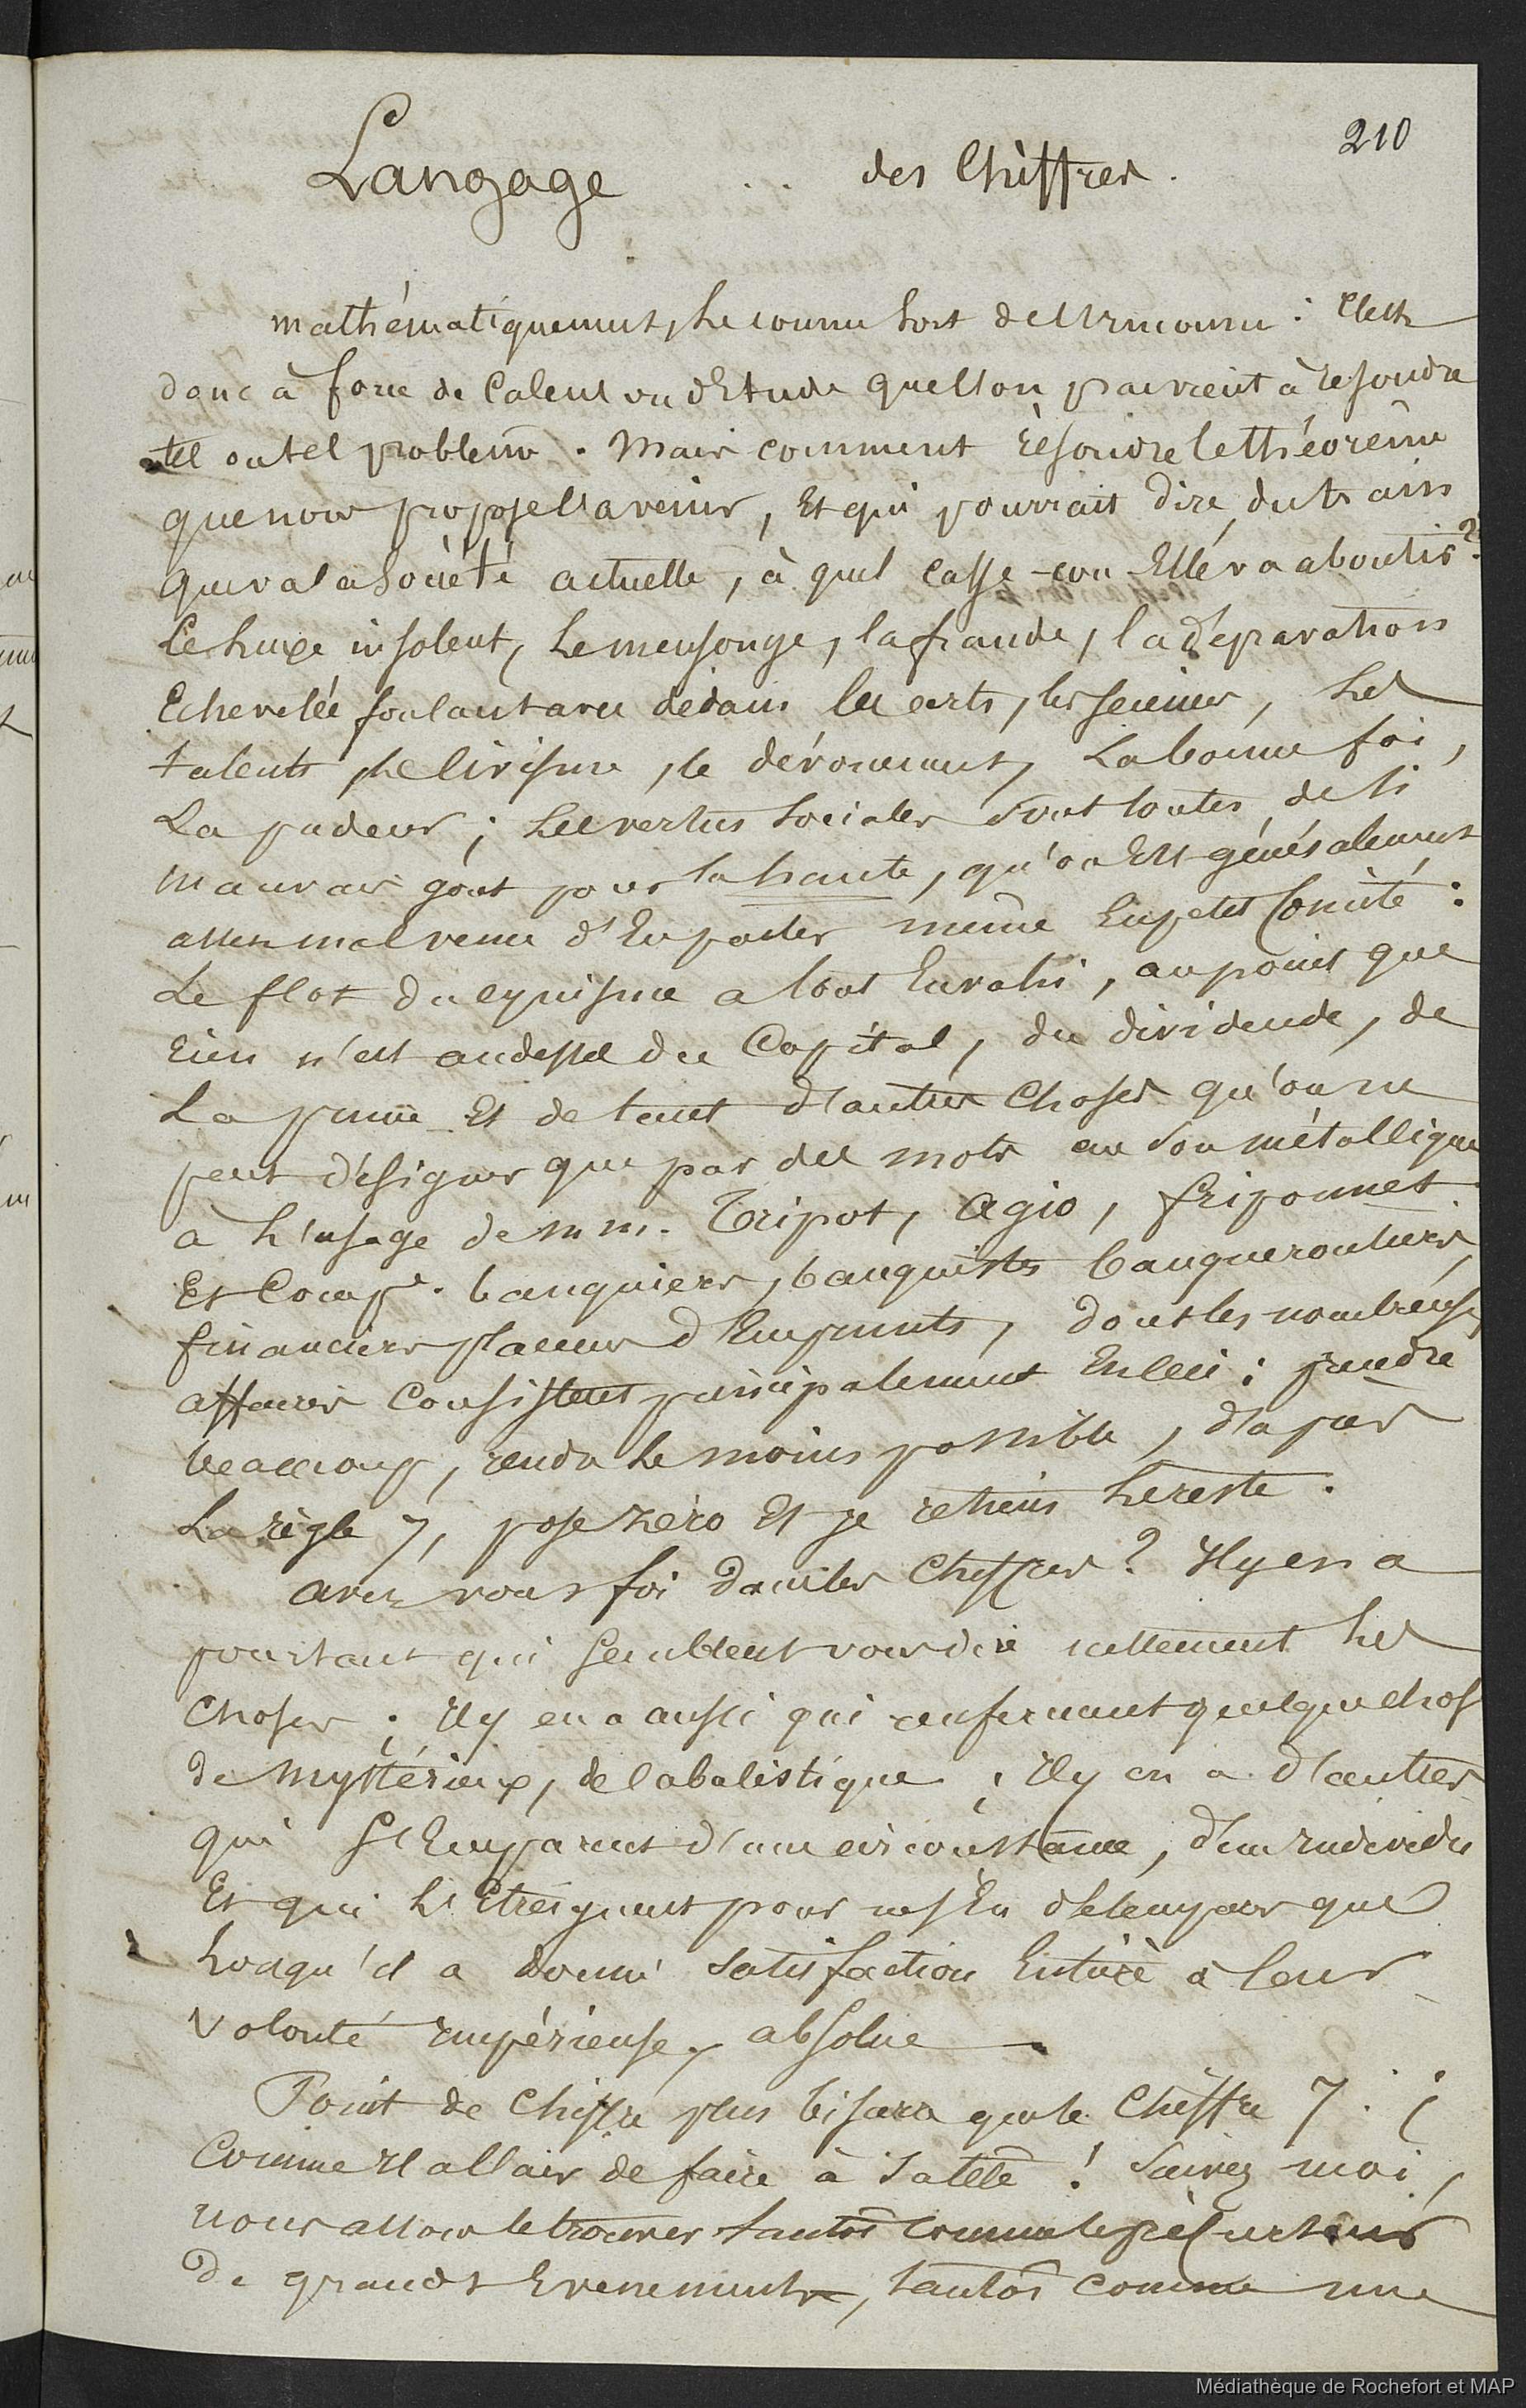 210
Langage des Chiffres.
mathématiquement, le connu sort de l'Inconnu : C'est
donc à force de Calcul ou d'Etude que l'on parvient à résoudre
tel ou tel problème. Mais comment résoudre le théorème
que nous propose l'avenir, Et qui pourrait dire, du train
que va la Société actuelle, à quel casse-cou Elle va aboutir ?
Le luxe insolent, Le mensonge, la fraude, la dépravation
Echevelée foulant avec dédain les arts, les sciences, les
talents, le civisme, le dévouement, La bonne foi,
La pudeur ; les vertus sociales sont toutes de si
mauvais goût pour la haute, qu'on Est généralement
assez mal venu d'En parler même En petit Comité :
Le flot du cynisme a tout Envahi, au point que
rien n'est au dessus du Capital, du dividende, de
La prime Et de tant d'autres Choses qu'on ne
peut désigner que par des mots au son métallique
à l'usage de mm. Tripot, Agio, friponnet
Et Comp.e banquiers, banquistes banqueroutiers,
financiers placeurs d'Emprunts, dont les nombreuses
affaires Consistent principalement En ceci : prendre
beaucoup, rendre le moins possible, d'après
La règle 7, pose zéro Et je retiens le reste.
avez vous foi dans les Chiffres ? Il y en a
pourtant qui semblent vous dire nettement les
Choses ; Il y en a aussi qui renferment quelque chose
de mystérieux, de Cabalistique ; Il y en a d'autres
qui s'Emparent d'une circonstance, d'un Individu
Et qui l'Etreignent pour ne s'En détemparer que
lorsqu'il a donné satisfaction Entière à leur
volonté Impérieuse, absolue.
Point de Chiffre plus bisare que le Chiffre 7 : (
Comme Il a l'air de faire à sa tête ! Suivez moi,
nous allons le trouver tantôt comme le précurseur
De grands Evenements, tantôt comme une
Médiathèque de Rochefort et MAP